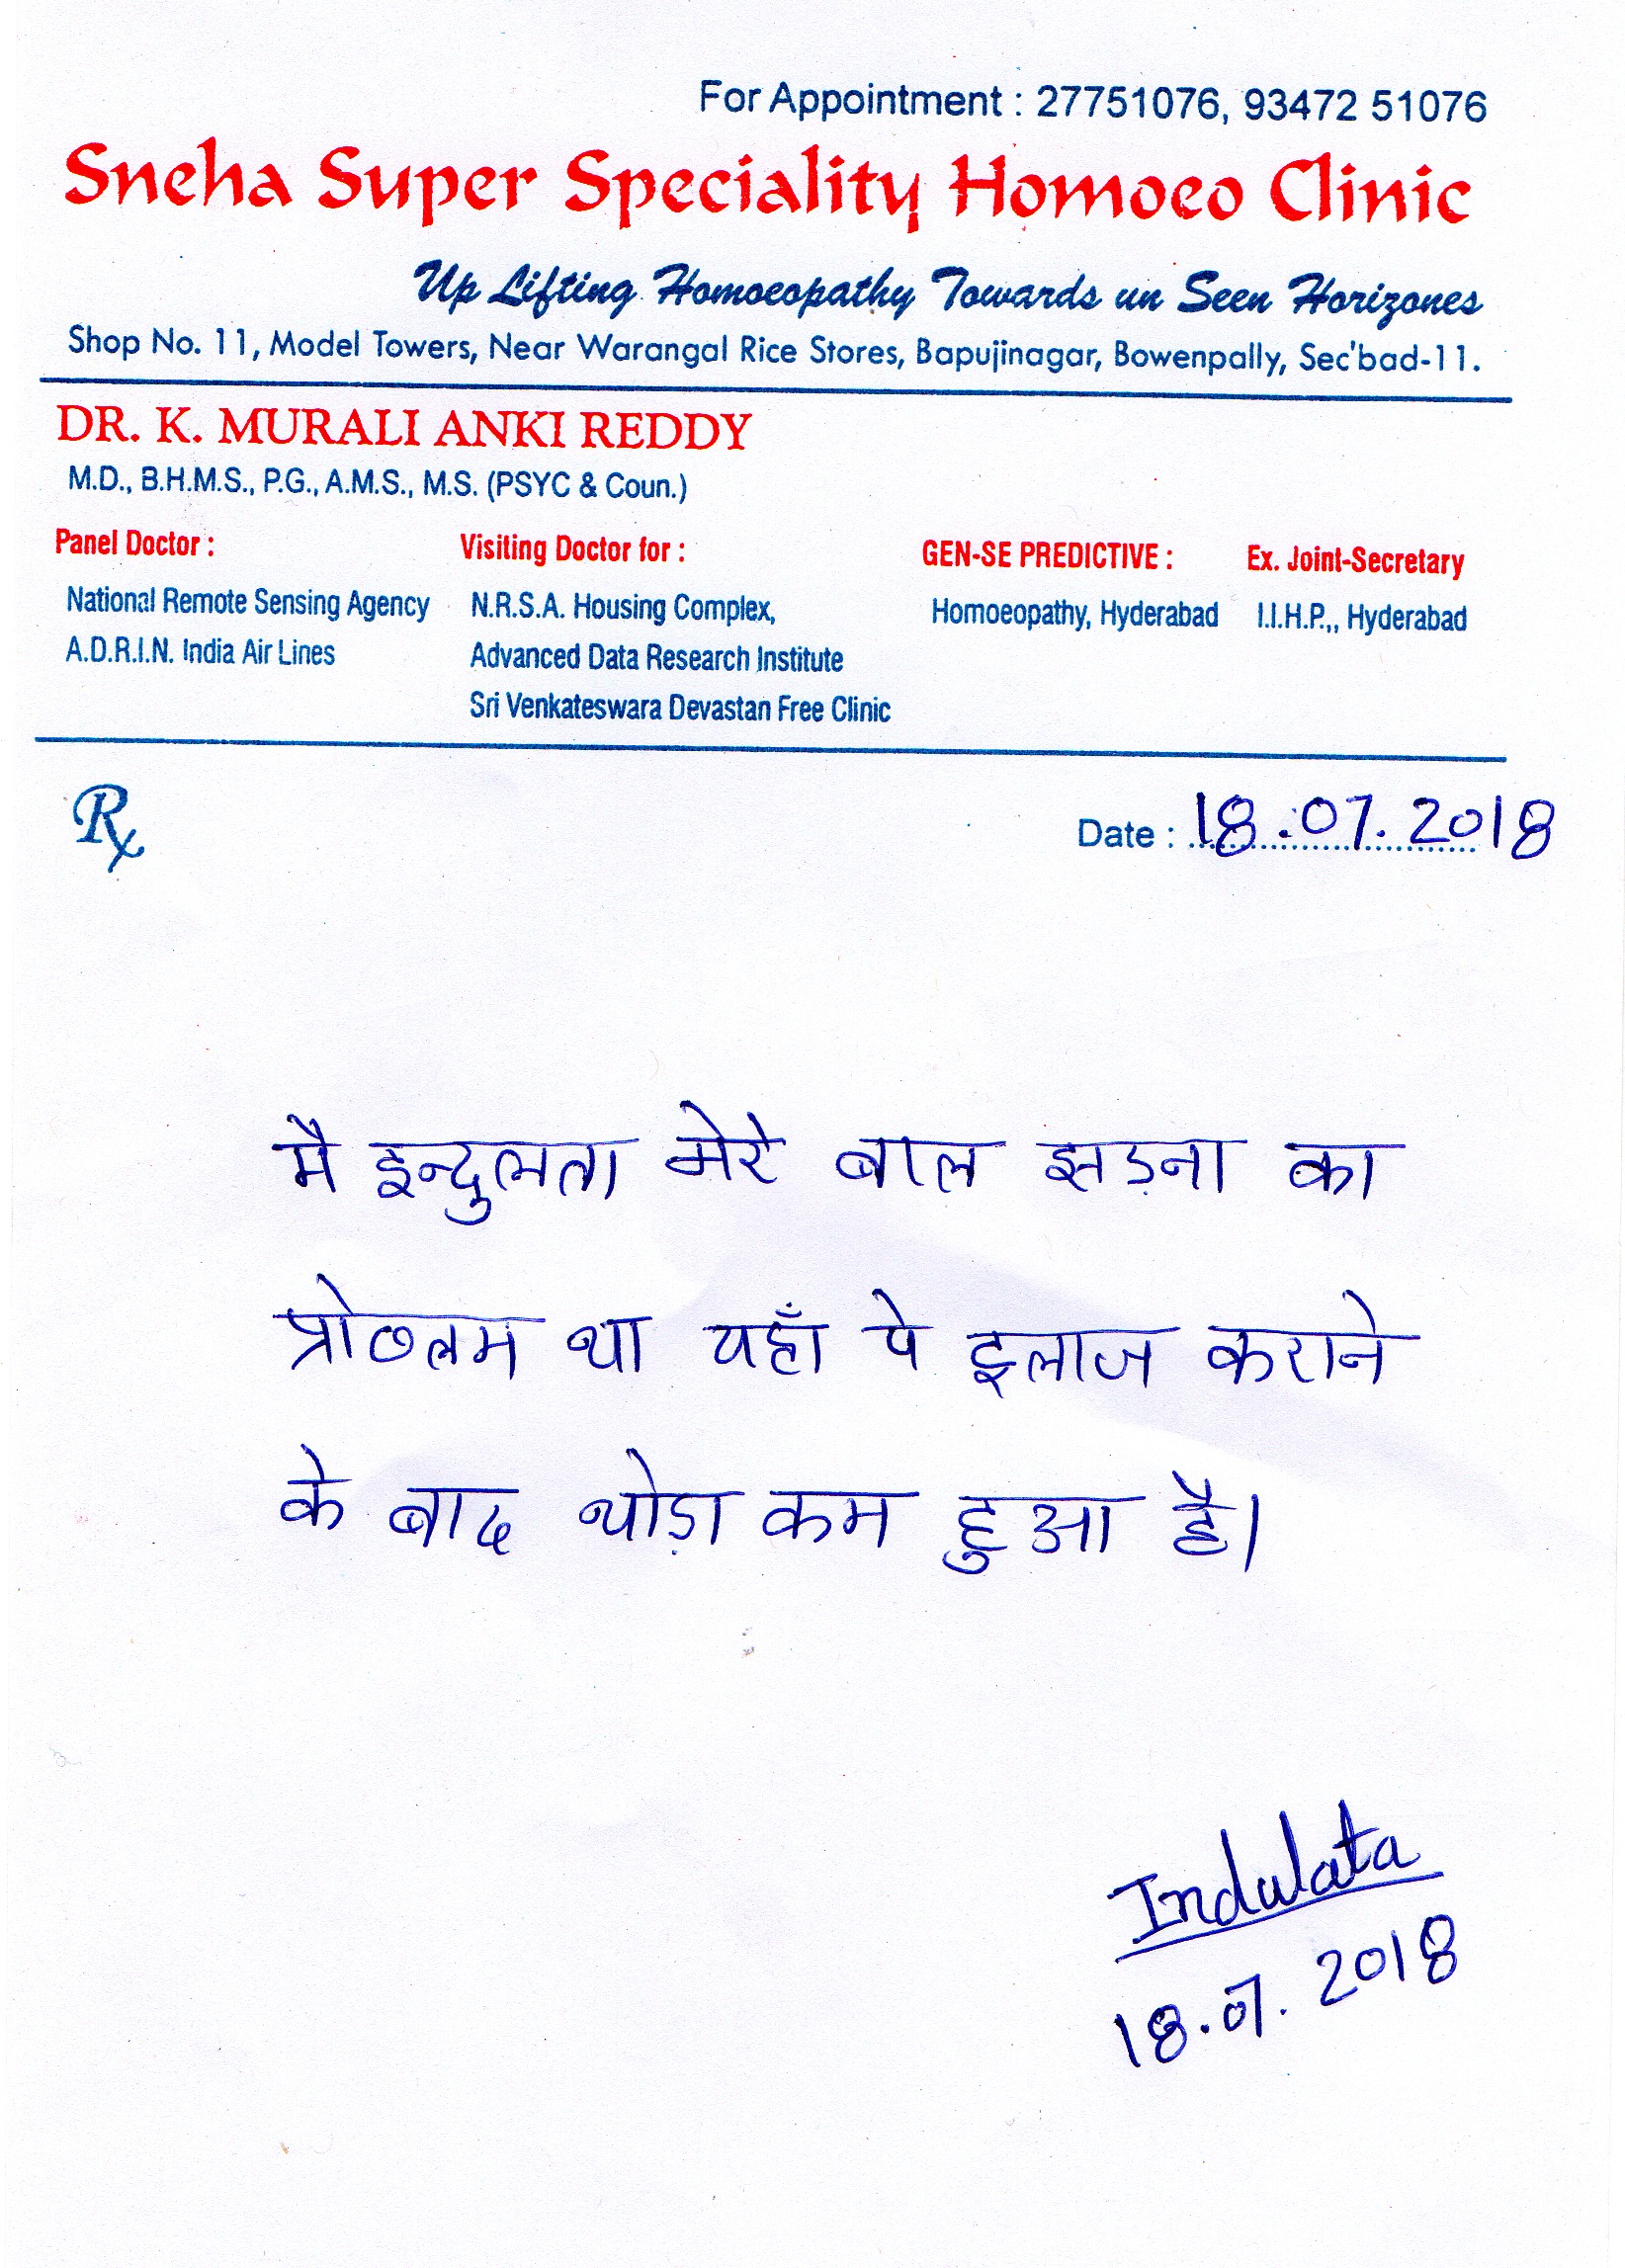 For Appointment : 27751076, 93472 51076
Sneha Super Speciality Homoeo Clinic
Up Lifting Homoeopathy Towards un Seen Horizones
Shop No. 11, Model Towers, Near Warangal Rice Stores, Bapujinagar, Bowenpally, Sec'bad-11.
DR. K. MURALI ANKI REDDY
M.D., B.H.M.S., P.G., A.M.S., M.S. (PSYC & Coun.)
Panel Doctor : Visiting Doctor for : GEN-SE PREDICTIVE : Ex. Joint-Secretary
National Remote Sensing Agency N.R.S.A. Housing Complex, Homoeopathy, Hyderabad I.I.H.P.,, Hyderabad
A.D.R.I.N. India Air Lines Advanced Data Research Institute
Sri Venkateswara Devastan Free Clinic
Rx Date : 18.07.2018
मै इन्दुलता मेरे बाल झड़ना का
प्रोब्लम था यहाँ पे इलाज कराने
के बाद थोड़ा कम हुआ है।
Indulata
18.07.2018